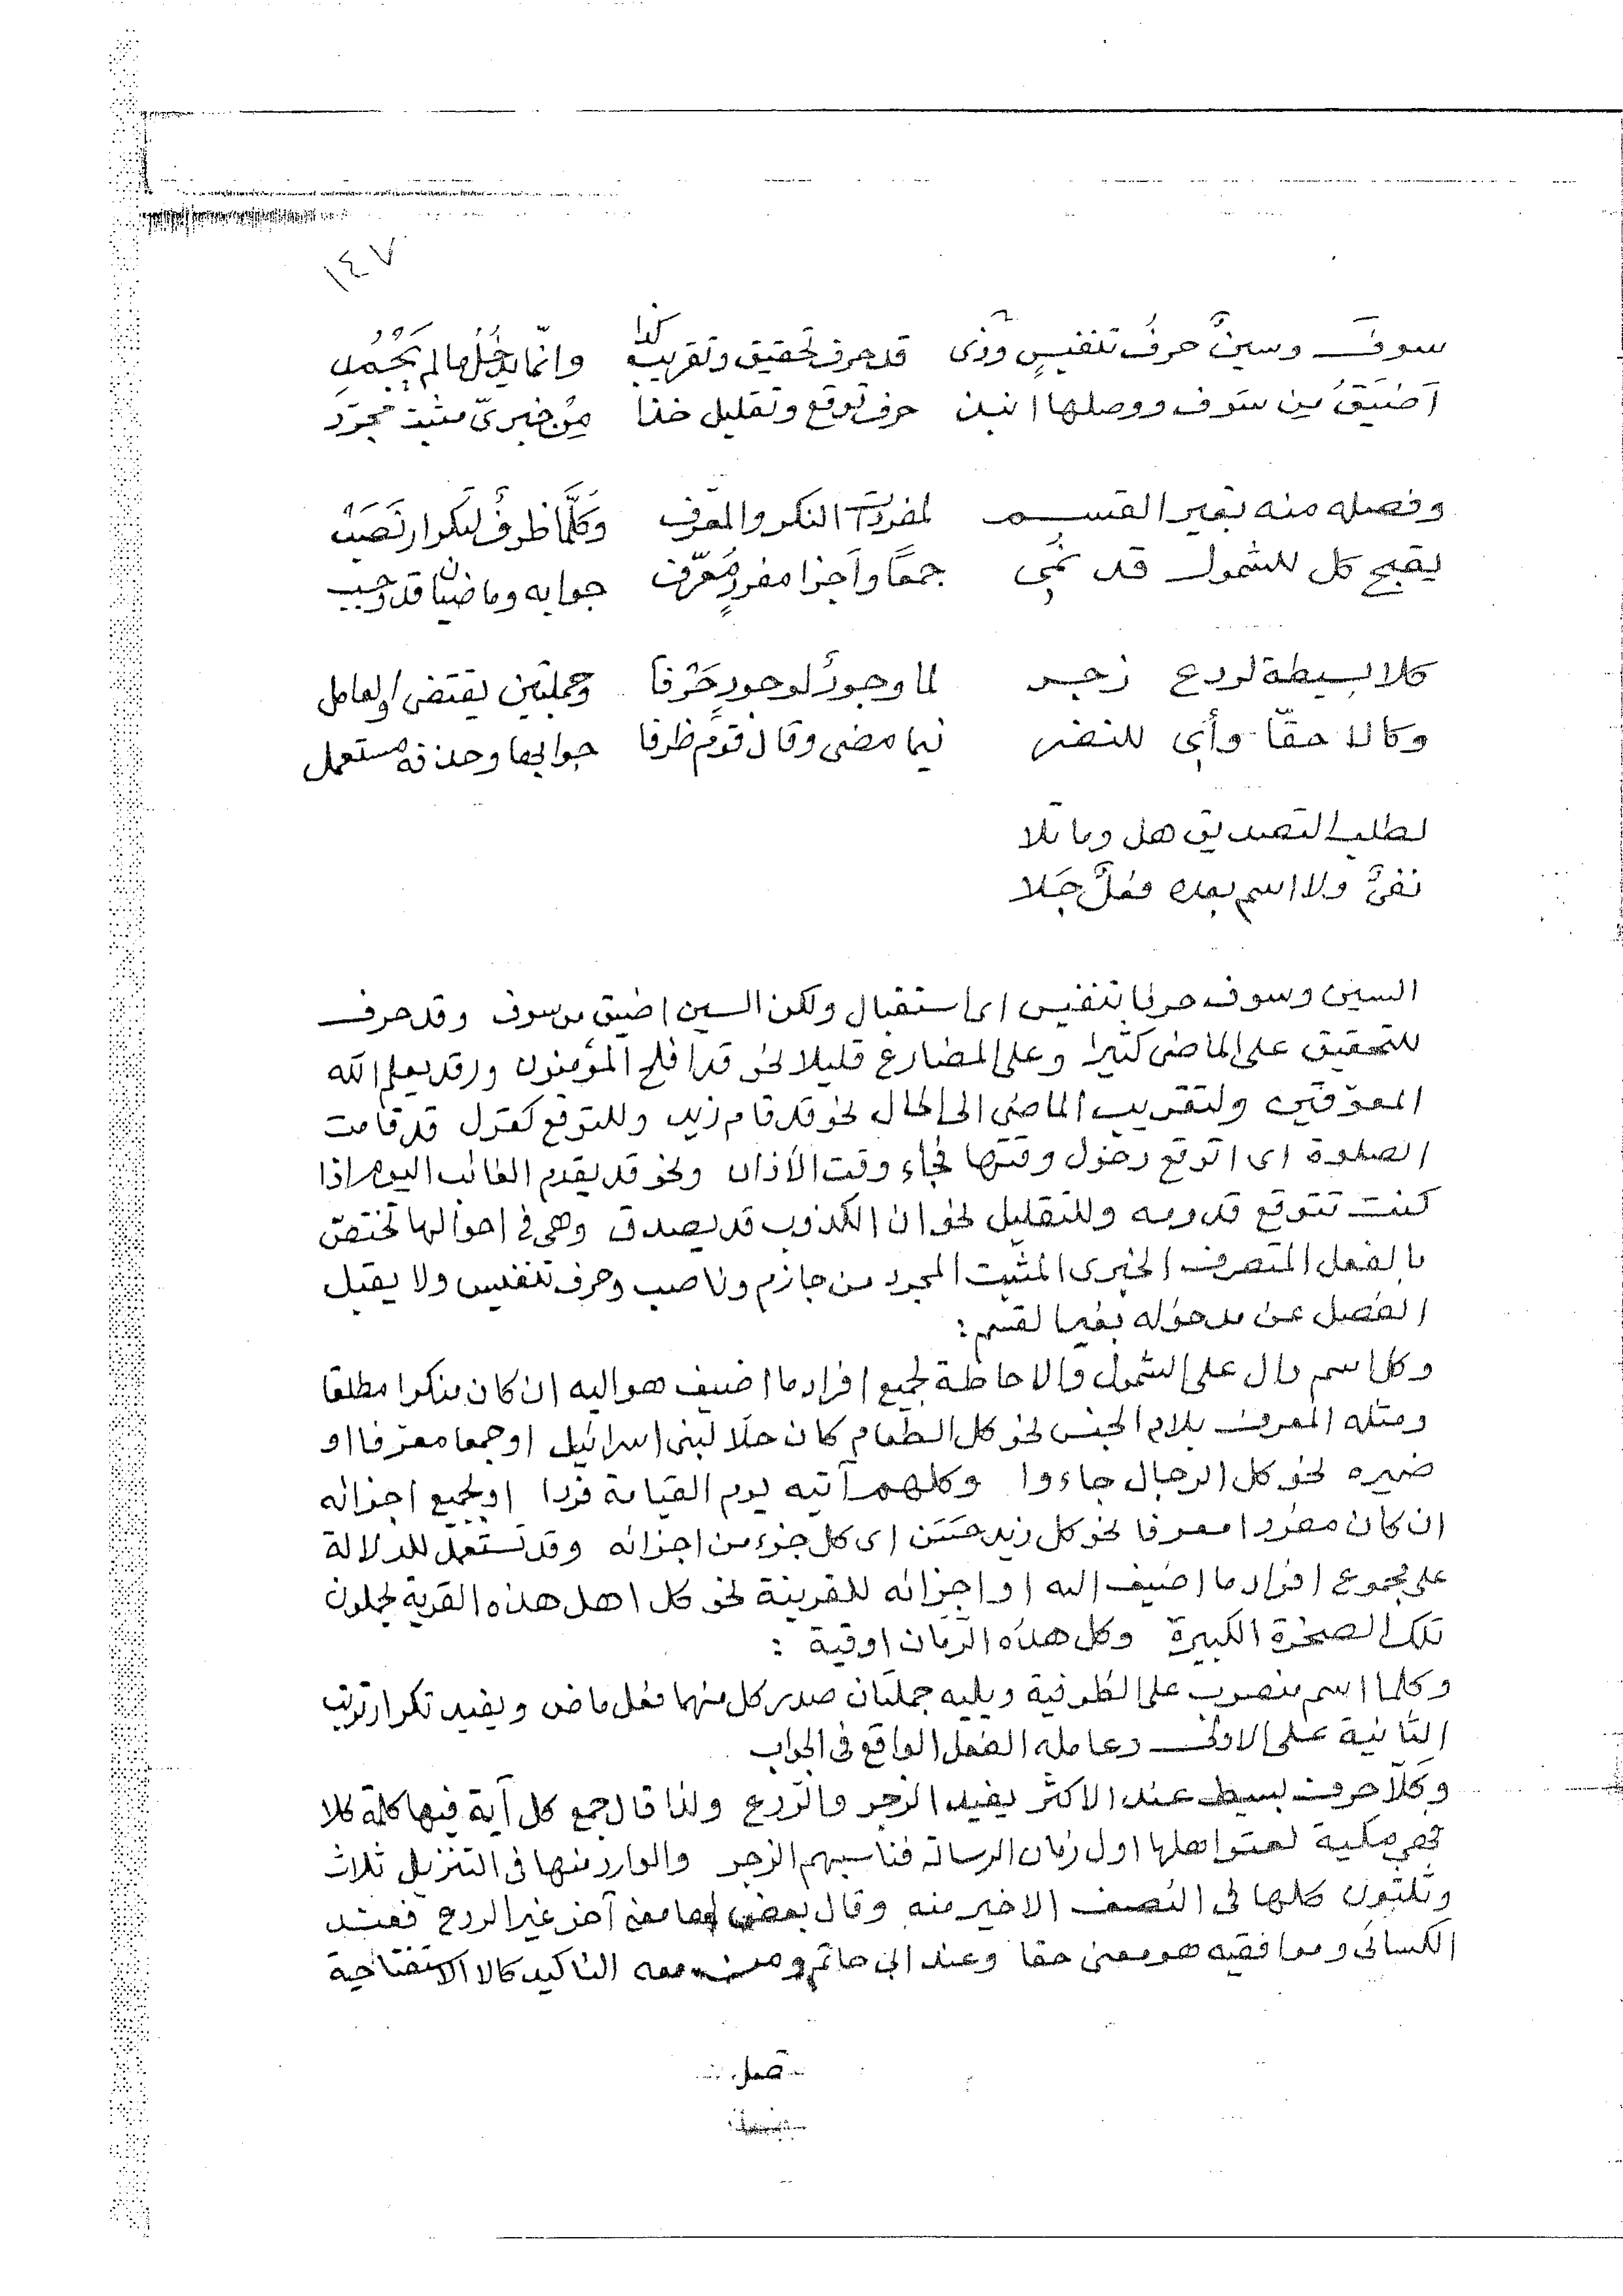 ١٤٧
سوفَ وسينٌ حرفُ تنفيسٍ وذى قد حرف تحقيق وتقريب كذا وانّما يدخُلُها لم يَجْمُدِ
أضيَقُ مِن سَوف ووصلها انبذ حرف توقع وتقليل خذا مِن خبرىّ مثبت مجرّد
وفصله منه بغير القسم لمفردات النكر والمعرف وكُلَّما ظرفٌ لتكرار نَصَبْ
يقبح كل للشمول قد نُمِي جمعًا وأجزا مفردٍ مُعَرّف جوابه وماضيان قد وجب
كلا بسيطة لردع زجر لما وجودٌ لوجود حَرْفا وجملتين يقتضى والعامل
وكالا حقّا وأى للنضر فيما مضى وقال قومٌ ظرفا جوابها وحذفه مستعمل
لطلب التصديق هل وما تلا
نفىٌ ولا اسم بعده فعلٌ جَلا
السين وسوف حرفا تنفيس اى استقبال ولكن السين اضيق من سوف وقد حرف
للتحقيق على الماضى كثيرا وعلى المضارع قليلا نحو قد افلح المؤمنون وقد يعلم الله
المعوّقين ولتقريب الماضى الى الحال نحو قد قام زيد وللتوقع كقول قد قامت
الصلوة اى اتوقع دخول وقتها فجاء وقت الأذان ونحو قد يقدم الغائب اليوم اذا
كنت تتوقع قدومه وللتقليل نحو ان الكذوب قد يصدق وهى فى احوالها تختصّ
بالفعل المتصرف الخبرى المثبت المجرد من جازم وناصب وحرف تنفيس ولا يقبل
الفصل عن مدخوله بغير القسم :
وكل اسم دال على الشمول والاحاطة لجميع افراد ما اضيف هو اليه ان كان منكرا مطلقا
ومثله المعرف بلام الجنس نحو كل الطعام كان حلّا لبنى اسرائيل او جمعا معرّفا او
ضميره نحو كل الرجال جاءوا وكلهم آتيه يوم القيامة فردا او لجميع اجزائه
ان كان مفردا معرفا نحو كل زيد حسَن اى كل جزء من اجزائه وقد تستعمل للدلالة
على مجموع افراد ما اضيف اليه او اجزائه للقرينة نحو كل اهل هذه القرية يحملون
تلك الصخرة الكبيرة وكل هذه الرمّان اوقية :
وكلما اسم منصوب على الظرفية ويليه جملتان صدر كل منهما فعل ماض ويفيد تكرار ترتب
الثانية على الاولى وعامله الفعل الواقع فى الجواب
وكلّا حرف بسيط عند الاكثر يفيد الزجر والرّدع ولذا قال جمع كل آية فيها كلمة كلا
فهى مكية لعتو اهلها اول زمان الرسالة فناسبهم الزجر والوارد منها فى التنزيل ثلاث
وثلثون كلها فى النصف الاخير منه وقال بعض لها معنى آخر غير الردع فعند
الكسائى وموافقيه هو معنى حقا وعند ابى حاتم ومن معه التاكيد كالا الاستفتاحية